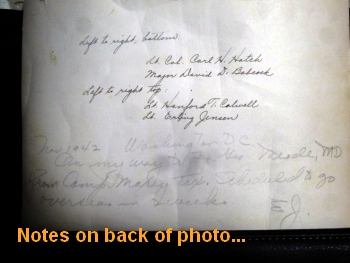 Left to right, bottom
Lt Col. Carl H. Hatch
Major David D. Babcock
Left to right top:
Lt. Hanford T. Colwell
Lt. Erling Jensen
Nov 1942 Washington D.C.
On our way to Ft. Geo. Meade, MD
from Camp Maxey Tex. Scheduled to go
overseas in 2 weeks.
E J.
Notes on back of photo...